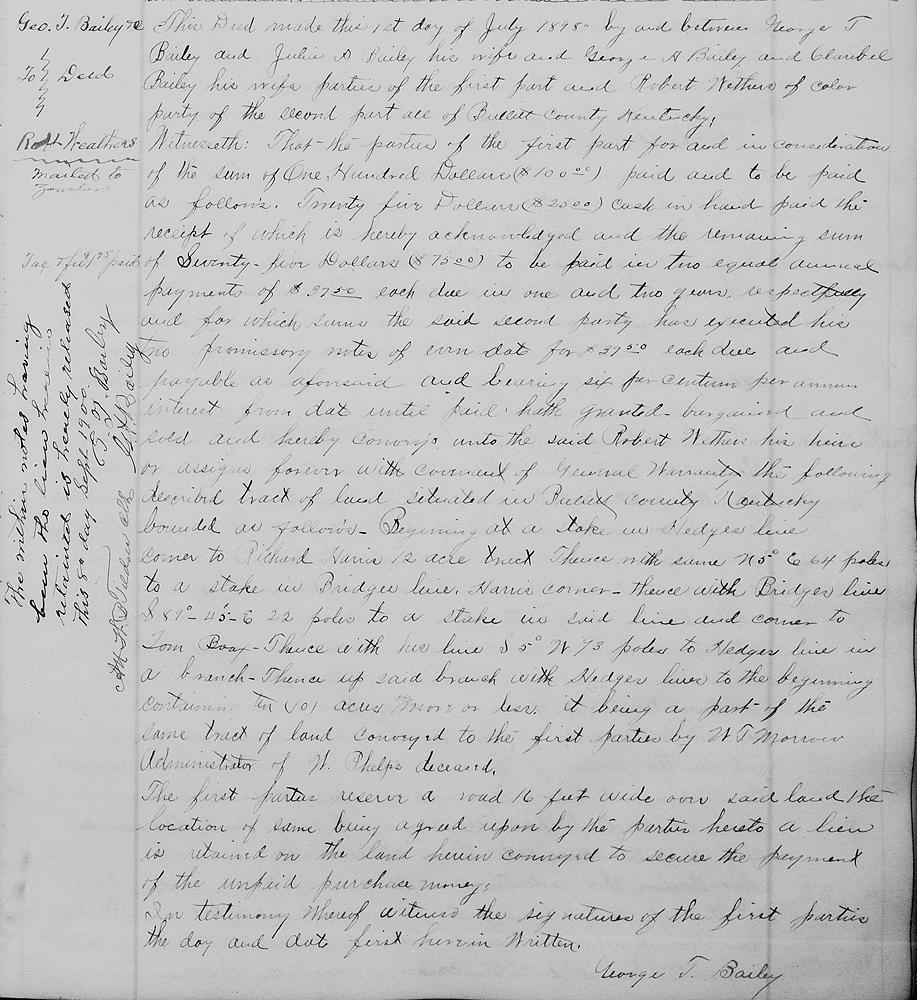 Geo. T. Bailey &c
To } Deed
Robt Weathers
Mailed to
Tax of $1.75 paid
The within notes having
been the lien herein
retained is hereby released
this 8 day Sept 1900
G. T. Bailey
G H Bailey
This Deed made this 1st day of July 1898 by and between George T
Bailey and Julia A Bailey his wife and George H Bailey and Claribel
Bailey his wife parties of the first part and Robert Wethers of color
party of the second part all of Bullitt County Kentucky;
Witnesseth: That the parties of the first part for and in consideration
of the sum of One Hundred Dollars ($100 00) paid and to be paid
as follows. Twenty five Dollars ($25 00) cash in hand paid the
receipt of which is hereby acknowledged and the remaining sum
of Seventy-five Dollars ($75 00) to be paid in two equal annual
payments of $37 50 each due in one and two years respectfully
and for which sums the said second party has executed his
two promissory notes of even dat for $37 50 each due and
payable as aforesaid and bearing six per centum per annum
interest from dat until paid hath granted - bargained and
sold and hereby conveys unto the said Robert Wethers his heirs
or assigns forever with covenant of General Warranty the following
described tract of land situated in Bullitt County Kentucky
bounded as follows - Beginning at a stake in Hedges line
corner to Richard Harris 12 acre tract Thence with same N 5° E 64 poles
to a stake in Bridges line, Harris corner - thence with Bridges line
S 89° - 45 - E 22 poles to a stake in said line and corner to
Tom - Thence with his line S 5° W 73 poles to Hedges line in
a branch - Thence up said branch with Hedges lines to the beginning
containing ten (10) acres more or less. it being a part of the
same tract of land conveyed to the first parties by W T Morrow
Administrator of W. Phelps deceased.
The first parties reserve a road 16 feet wide over said land the
location of same being agreed upon by the parties hereto a lien
is retained on the land herein conveyed to secure the payment
of the unpaid purchase money;
In testimony Whereof witness the signatures of the first parties
the day and dat first herein Written.
George T. Bailey